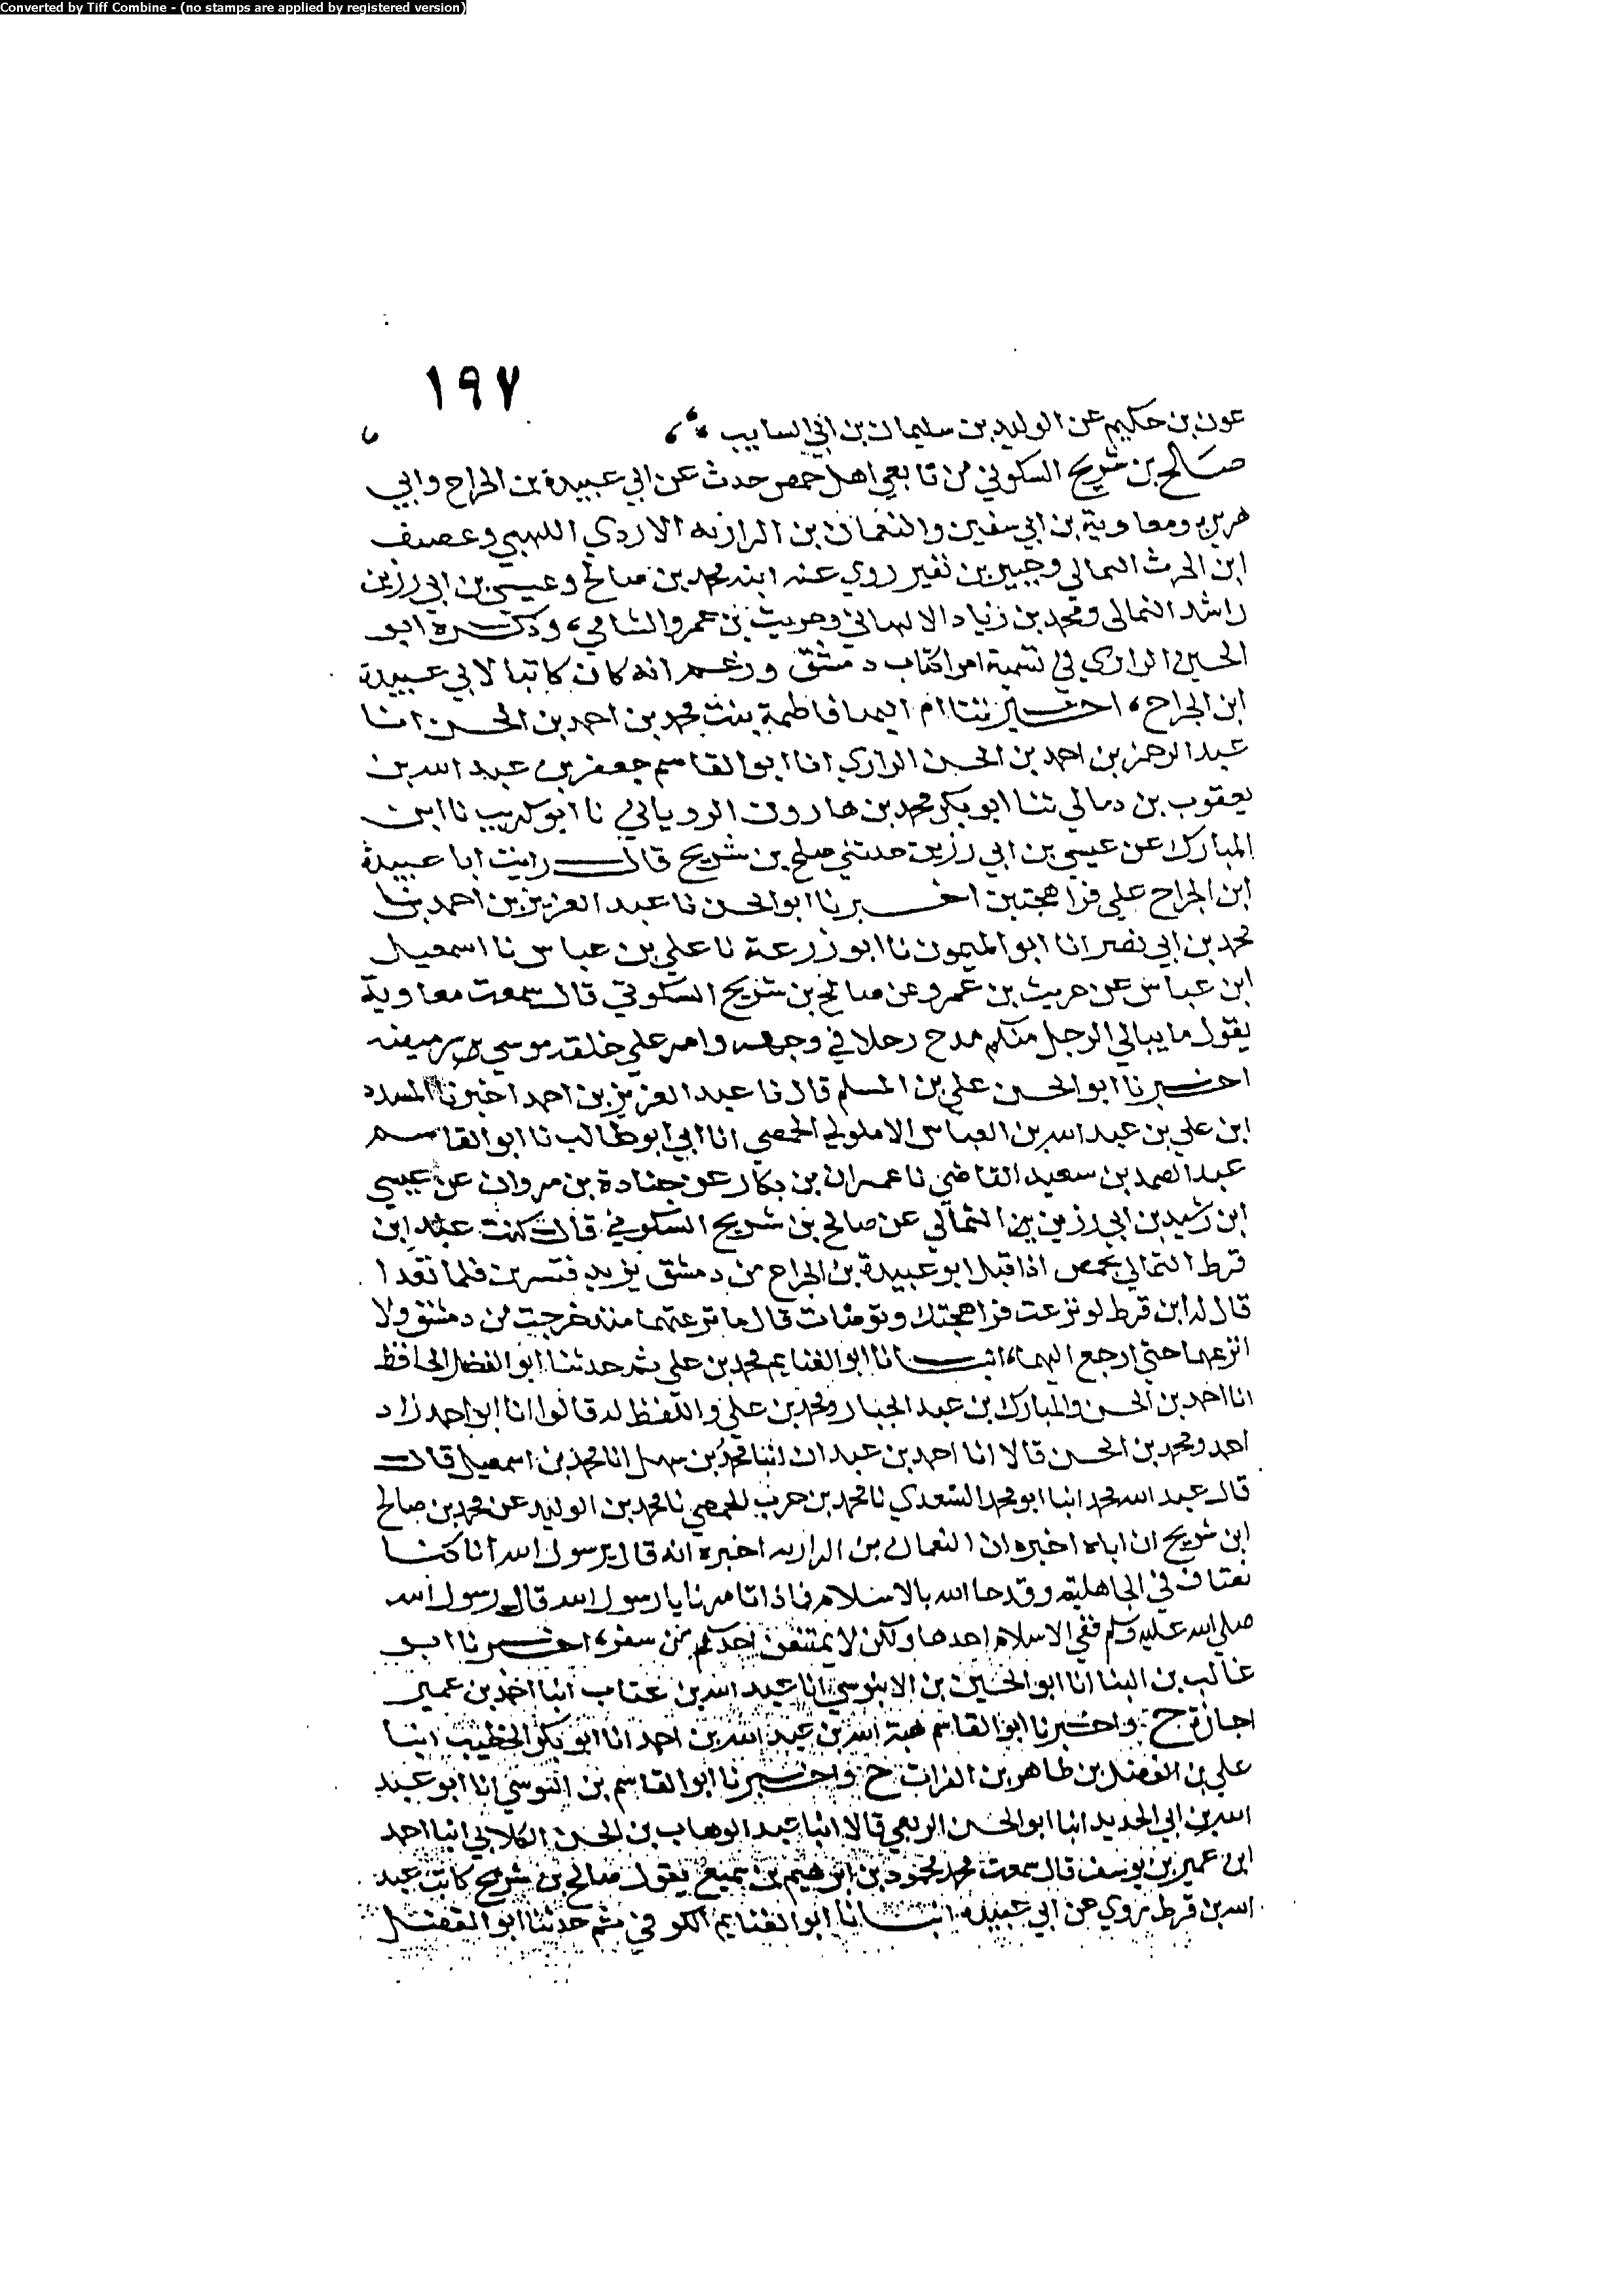 Converted by Tiff Combine - (no stamps are applied by registered version)
١٩٧
عون بن حكيم عن الوليد بن سليمان بن ابي السايب
صالح بن شريح السكوني من تابعي اهل حمص حدث عن ابي عبيدة بن الجراح وابي
هريره ومعاوية بن ابي سفين والنعمان بن الرازيه الازدي اللهبي وعصيف
ابن الحرث الثمالي وجبير بن نفير روي عنه ابنه محمد بن صالح وعيسي بن ابي رزين
راشد الثمالي ومحمد بن زياد الالهاني وحريث بن عمرو الشامي، وذكره ابو
الحسين الرازي في تسمية امرا كتاب دمشق وزعم انه كان كاتبا لابي عبيدة
ابن الجراح، اخبرتنا ام البها فاطمة بنت محمد بن احمد بن الحسن انا
عبد الرحمن بن احمد بن الحسن الرازي انا ابو القاسم جعفر بن عبد الله بن
يعقوب بن دمالي ثنا ابو بكر محمد بن هارون الروياني نا ابو كريب نا ابن
المبارك عن عيسي بن ابي رزين حدثني صلح بن شريح قال رايت ابا عبيدة
ابن الجراح علي فراهجتين اخبرنا ابو الحسن نا عبد العزيز بن احمد نا
محمد بن ابي نصر انا ابو الميمون نا ابو زرعة نا علي بن عباس نا اسمعيل
ابن عباس عن حريث بن عمرو عن صالح بن شريح السكوني قال سمعت معاوية
يقول ما يبالي الرجل منكم مدح رجلا في وجهه وامر علي خلقه موسي
اخبرنا ابو الحسن علي بن المسلم قال نا عبد العزيز بن احمد اخبرنا المسدد
ابن علي بن عبد الله بن العباس الاملولي الحمصي انا ابي ابو طالب نا ابو القاسم
عبد الصمد بن سعيد القاضي نا عمران بن بكار عن جنادة بن مروان عن عيسي
ابن رشيد بن ابي رزين الثمالي عن صالح بن شريح السكوني قال كنت عند ابن
قرط الثمالي بحمص اذ اقبل ابو عبيدة بن الجراح من دمشق يريد قنسرين فلما تغدا
قال له ابن قرط لو نزعت فراهجتك وتوضات قال ما نزعتهما منذ خرجت من دمشق ولا
انزعهما حتي ارجع اليها، انبانا ابو الغنايم محمد بن علي ثم حدثنا ابو الفضل الحافظ
انا احمد بن الحسن والمبارك بن عبد الجبار ومحمد بن علي واللفظ له قالوا انا ابو احمد زاد
احمد ومحمد بن الحسن قالا انا احمد بن عبدان انبا محمد بن سهل انا محمد بن اسمعيل قال
قال عبد الله محمد انبا ابو محمد السعدي نا محمد بن حرب الحمصي نا محمد بن الوليد عن محمد بن صالح
ابن شريح ان اباه اخبره ان النعمان بن الرازيه اخبره انه قال يرسول الله انا كنا
نعتاف في الجاهلية وقد جا الله بالاسلام فماذا تامرنا يا رسول الله قال رسول الله
صلي الله عليه وسلم ففي الاسلام احدها ولكن لا يمتنعن احدكم من سفره، اخبرنا ابو
غالب بن البنا انا ابو الحسين بن الابنوسي انا عبد الله بن عتاب انبا احمد بن عمير
اجازة ح واخبرنا ابو القاسم هبة الله بن عبد الله بن احمد انا ابو بكر الخطيب انبا
علي بن الفضل بن طاهر بن الفرات ح واخبرنا ابو القاسم بن السوسي انا ابو عبد
الله بن ابي الحديد انبا ابو الحسن الربعي قالا انبا عبد الوهاب بن الحسن الكلابي انبا احمد
ابن عمير بن يوسف قال سمعت محمد محمود بن ابرهيم بن سميع يقول صالح بن شريح كاتب عبد
الله بن قرط يروي عن ابي عبيدة انبانا ابو الغنايم الكوفي ثم حدثنا ابو الفضل